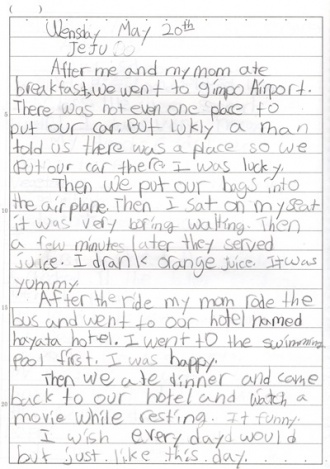 ( )
Wensday May 20th
Jeju
After me and my mom ate
breakfast, we went to gimpo Airport.
There was not even one place to
5
put our car. But lukly a man
told us there was a place so we
put our car there I was lucky.
Then we put our bags into
10
the airplane. Then I sat on my seat
it was very boring waiting. Then
a few minutes later they served
juice. I drank orange juice. It was
yummy
15
After the ride my mom rode the
bus and went to our hotel named
hayata hotel. I went to the swimming
pool first. I was happy.
Then we ate dinner and came
20
back to our hotel and watch a
movie while resting. It funny.
I wish every dayd would
but just like this day.